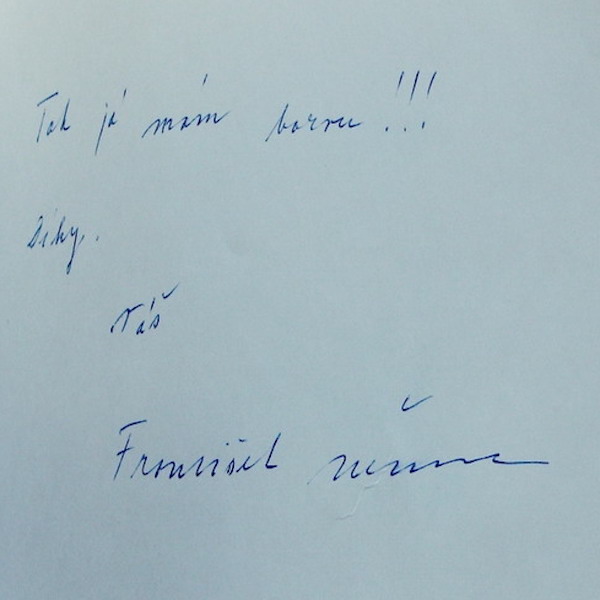 Tak já mám barvu !!!
Díky.
Váš
František